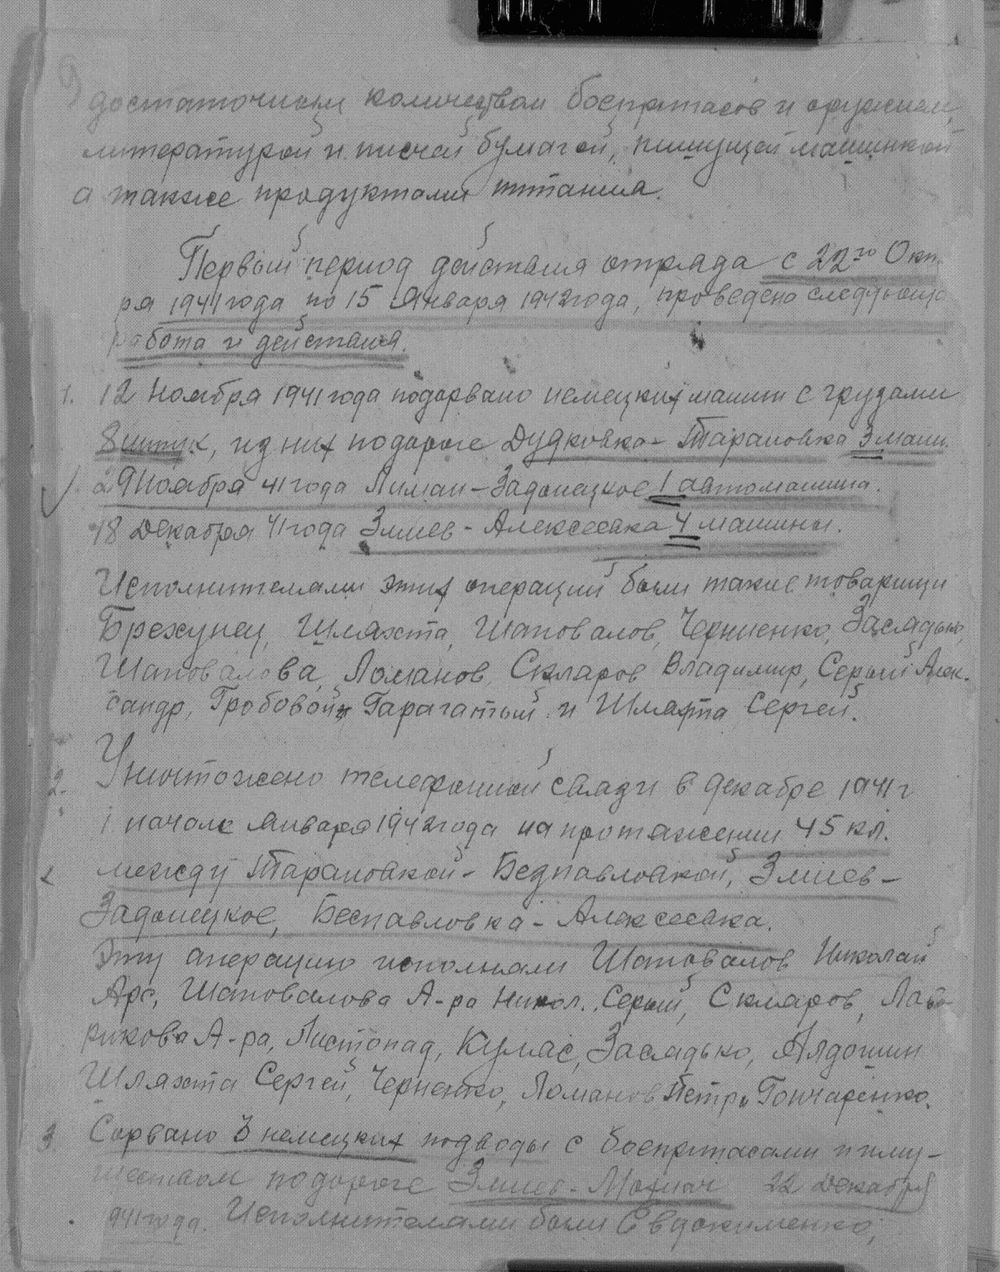 достаточным количеством боеприпасов и оружием,
литературой и писчей бумагой, пишущей машинкой
а также продуктами питания.
Первый период действия отряда с 22го Октя
ря 1941 года по 15 Января 1942 года, проведено следующа
работа и действия.
1. 12 Ноября 1941 года подорвано немецких машин с грузами
8 штук, из них по дороге Дудковка - Тарановка 3 маши.
29 Ноября 41 года Лиман - Задонецкое 1 автомашина.
18 Декабря 41 года Змиев - Алексеевка 4 машины.
Исполнителями этих операций были такие товарищи
Брехунец, Шляхта, Шаповалов, Черниенко, Заслядько,
Шаповалова, Ломанов, Скляров Владимир, Серый Алек-
сандр, Гробовой, Гарагатый и Шляхта Сергей.
2. Уничтожено телефонной связи в декабре 1941 г
и начале Января 1942 года на протяжении 45 кл.
между Тарановкой - Безпавловкой, Змиев -
Задонецкое, Беспавловка - Алексеевка.
Эту операцию исполняли Шаповалов Николай
Арс, Шаповалова А-ра Никол. Серый, Скляров, Лав-
рикова А-ра, Листопад, Кулас, Заслядько, Алдошин
Шляхта Сергей, Черненко, Ломанов Петр, Гончаренко.
3. Сорвано 3 немецких подводы с боеприпасами и иму-
ществом по дороге Змиев - Мохнач 22 Декабря
941 года. Исполнителями были Евдокименко,